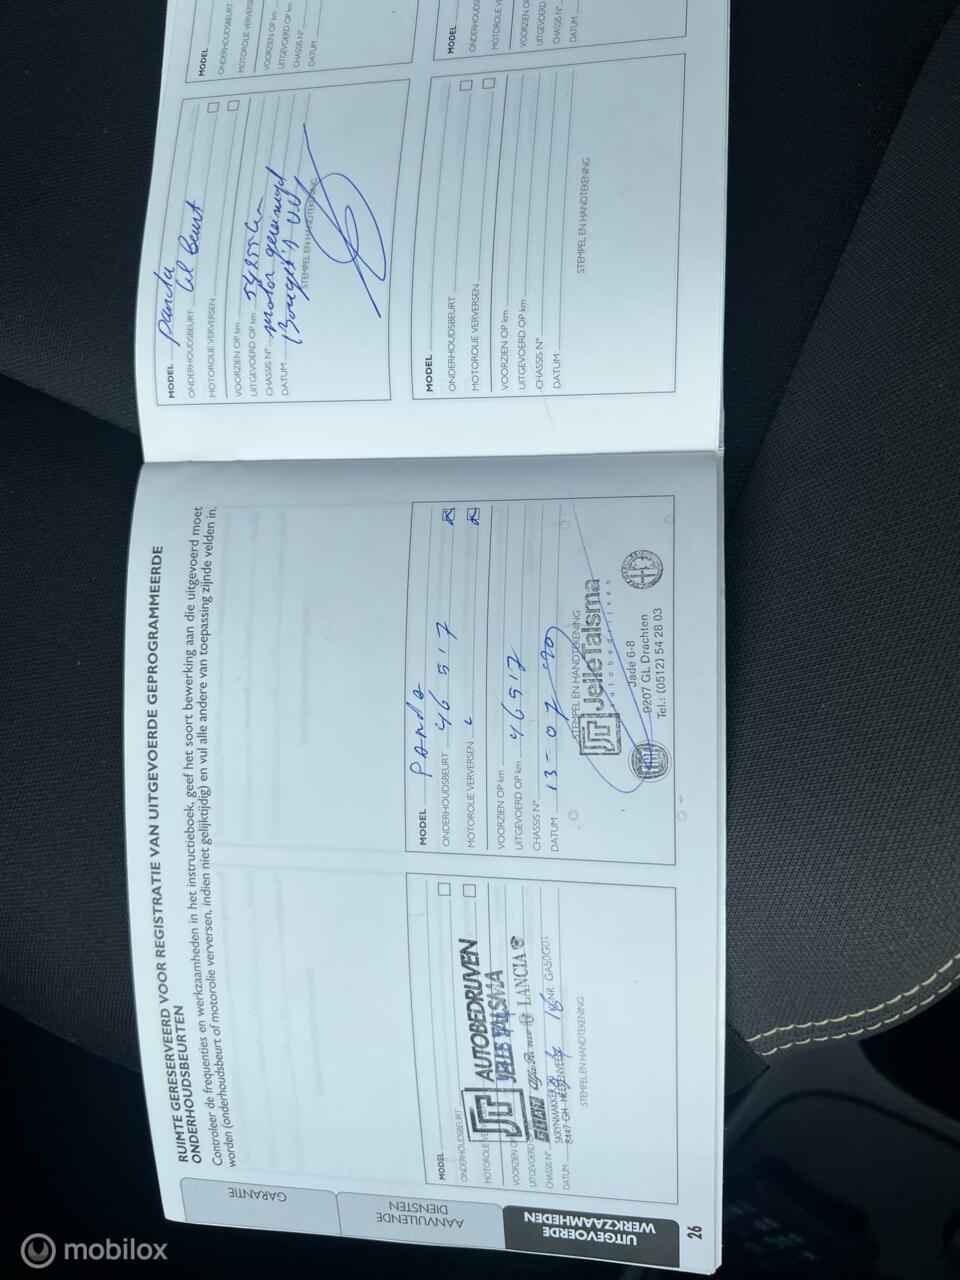 RUIMTE GERESERVEERD VOOR REGISTRATIE VAN UITGEVOERDE GEPROGRAMMEERDE
ONDERHOUDSBEURTEN
Controleer de frequenties en werkzaamheden in het instructieboek, geef het soort bewerking aan die uitgevoerd moet
worden (onderhoudsbeurt of motorolie verversen, indien niet gelijktijdig) en vul alle andere van toepassing zijnde velden in.
GARANTIE
AANVULLENDE
DIENSTEN
UITGEVOERDE
WERKZAAMHEDEN
26
MODEL
ONDERHOUDSBEURT
MOTOROLIE
VOORZIEN OP
UITGEVOERD
CHASSIS N°
DATUM
STEMPEL EN HANDTEKENING
JT AUTOBEDRIJVEN
JELLE TALSMA
FIAT Alfa Romeo LANCIA
8447 GH HEERENVEEN
NR GA50G01
MODEL Panda
ONDERHOUDSBEURT 46517
MOTOROLIE VERVERSEN
VOORZIEN OP km
UITGEVOERD OP km 46517
CHASSIS N°
DATUM 13-07-
STEMPEL EN HANDTEKENING
JT JelleTalsma
autobedrijven
Jade 6-8
9207 GL Drachten
Tel.: (0512) 54 28 03
MODEL Panda
ONDERHOUDSBEURT Oil Beurt
MOTOROLIE VERVERSEN
VOORZIEN OP km
UITGEVOERD OP km
CHASSIS N° motor gereinigd
DATUM Bougie's
STEMPEL EN HANDTEKENING
MODEL
ONDERHOUDSBEURT
MOTOROLIE VERVERSEN
VOORZIEN OP km
UITGEVOERD OP km
CHASSIS N°
DATUM
STEMPEL EN HANDTEKENING
MODEL
ONDERHOUDSBEURT
MOTOROLIE VERVERS
VOORZIEN OP km
UITGEVOERD OP km
CHASSIS N°
DATUM
MODEL
ONDERHOUDS
MOTOROLIE VE
VOORZIEN O
UITGEVOERD
CHASSIS N°
DATUM
mobilox